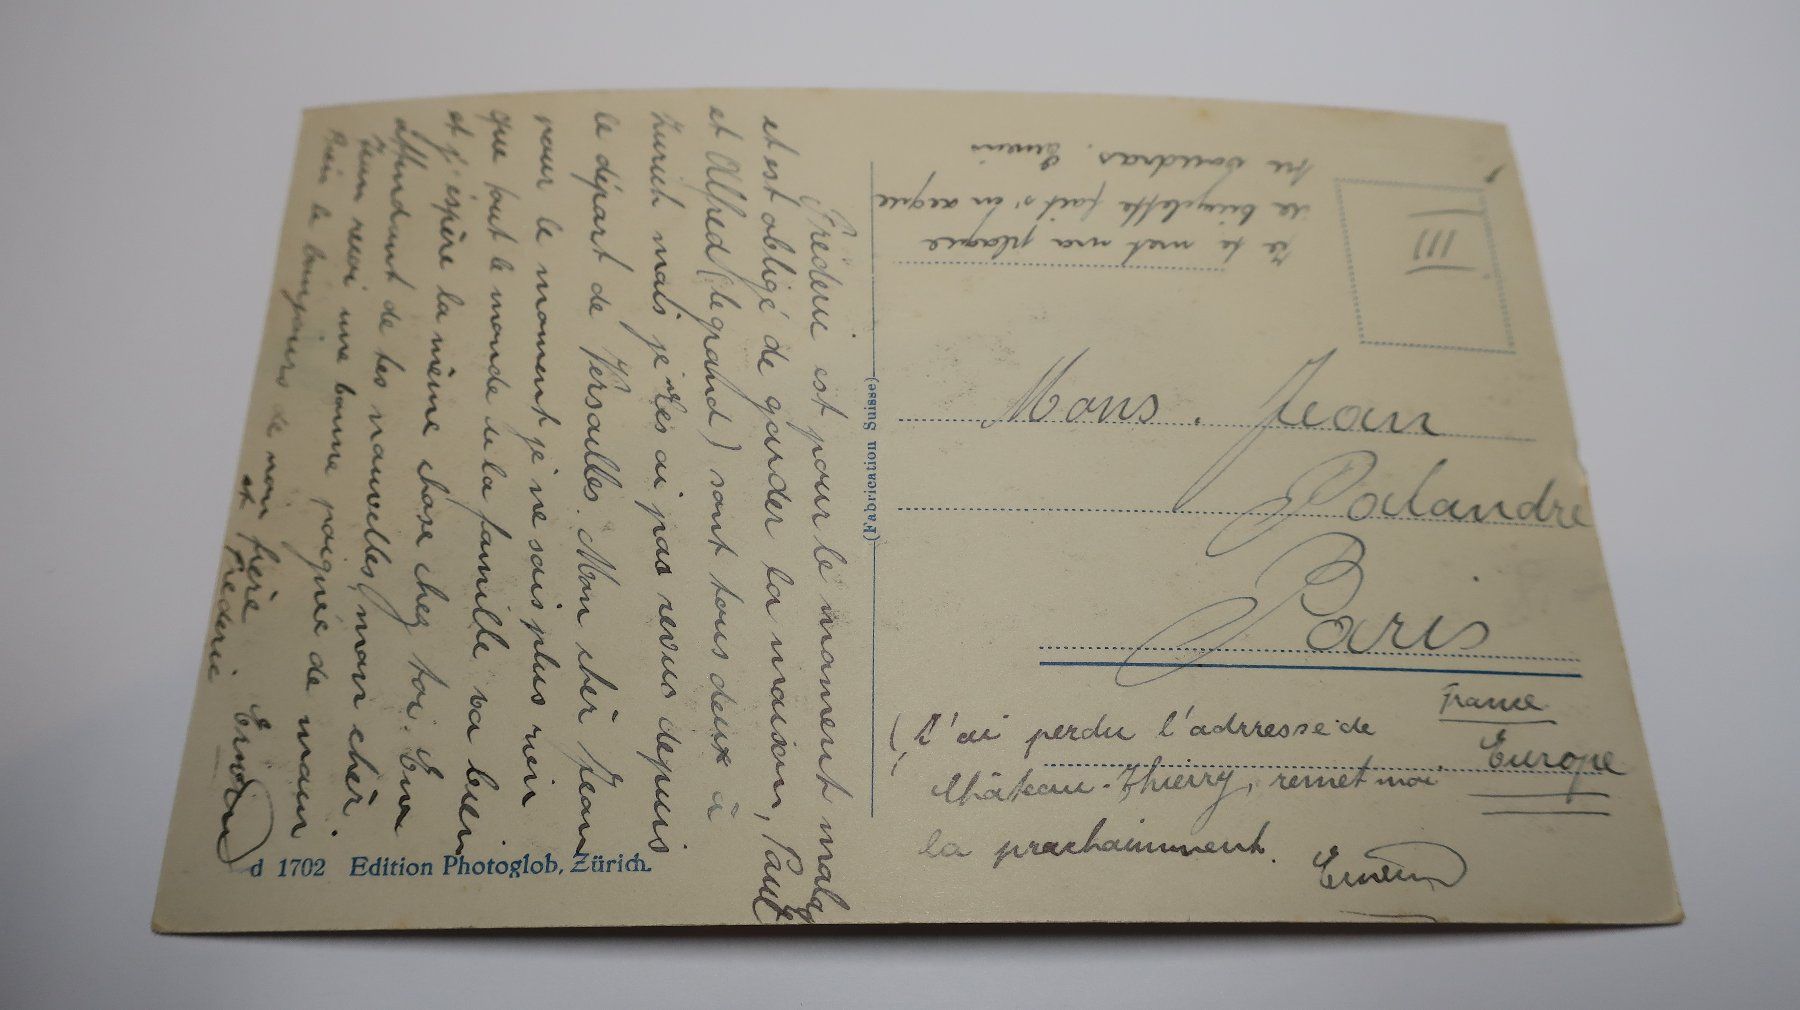 Frédéric est pour le moment mala
et est obligé de garder la maison, Paul
et Alfred (le grand) sont tous deux à
Zurich mais je les ai pas revus depuis
le départ de Versailles. Mon chèr Jean
pour le moment je ne sais plus rien
que tout le monde de la famille va bien
et j'éspère la même chose chez toi. En
attendant de tes nouvelles, mon chèr
Jean reçoi une bonne poignée de main
Bien le bonjours de mon frère
et Frederic
d 1702 Edition Photoglob, Zürich.
(Fabrication Suisse)
III
Je te met ma plaque
de bicyclette fait s'en ceque
tu voudras.
Mons. Jean
Palandre
Paris
France
Europe
J'ai perdu l'adrresse de
Château-Thierry, remet moi
la prochainnent.